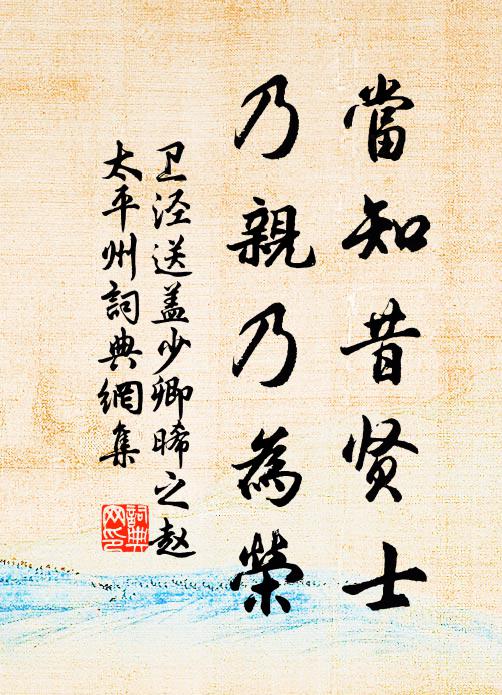 當知昔贤士
乃親乃為榮
卫泾送盖少卿晞之赵
太平州詞典網集
詞典
网印